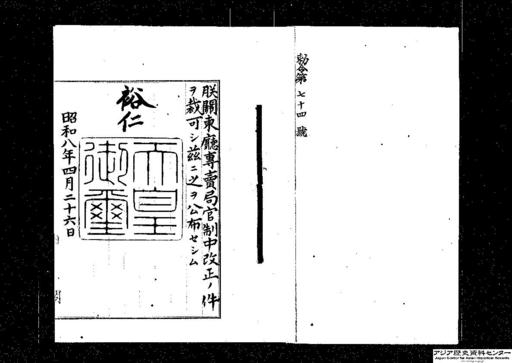 勅令第七十四號
朕關東廳專賣局官制中改正ノ件
ヲ裁可シ茲ニ之ヲ公布セシム
裕仁
天皇
御璽
昭和八年四月二十六日
アジア歴史資料センター
Japan Center for Asian Historical Records